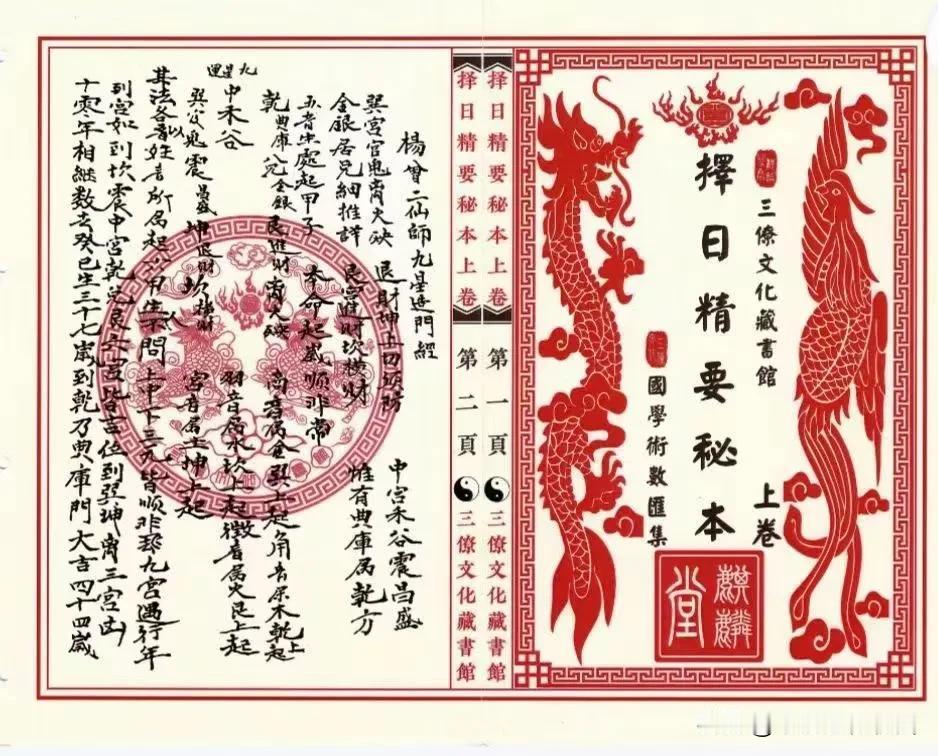 三僚文化藏書館
擇日精要秘本
上卷
國學術數匯集
麒麟堂
择日精要秘本上卷
第一頁
三僚文化藏書館
择日精要秘本上卷
第二頁
三僚文化藏書館
楊曾二仙師九星造門經
巽宮官鬼离火破 退財坤上切須防 中宮禾谷震昌盛
金銀居兌細推詳 艮宮進財坎橫財 惟有典庫居乾方
五音生處起甲子 本命起歲順非常
乾典庫 兌金銀 艮進財 离火破 商音屬金巽上起 角音屬木乾上起
中禾谷 羽音屬水坤上起 徵音屬火艮上起
巽官鬼 震昌盛 坤退財 坎橫財 宮音屬土坤上起
其法各以姓音所屬起六甲生人 問上中下三元皆順非
九宮遇行年
到宮如到坎震中宮乾兌艮六宮皆吉位到巽坤离三宮凶
十零年相继数去癸巳生三十七歲到乾乃典庫門大吉四十四歲